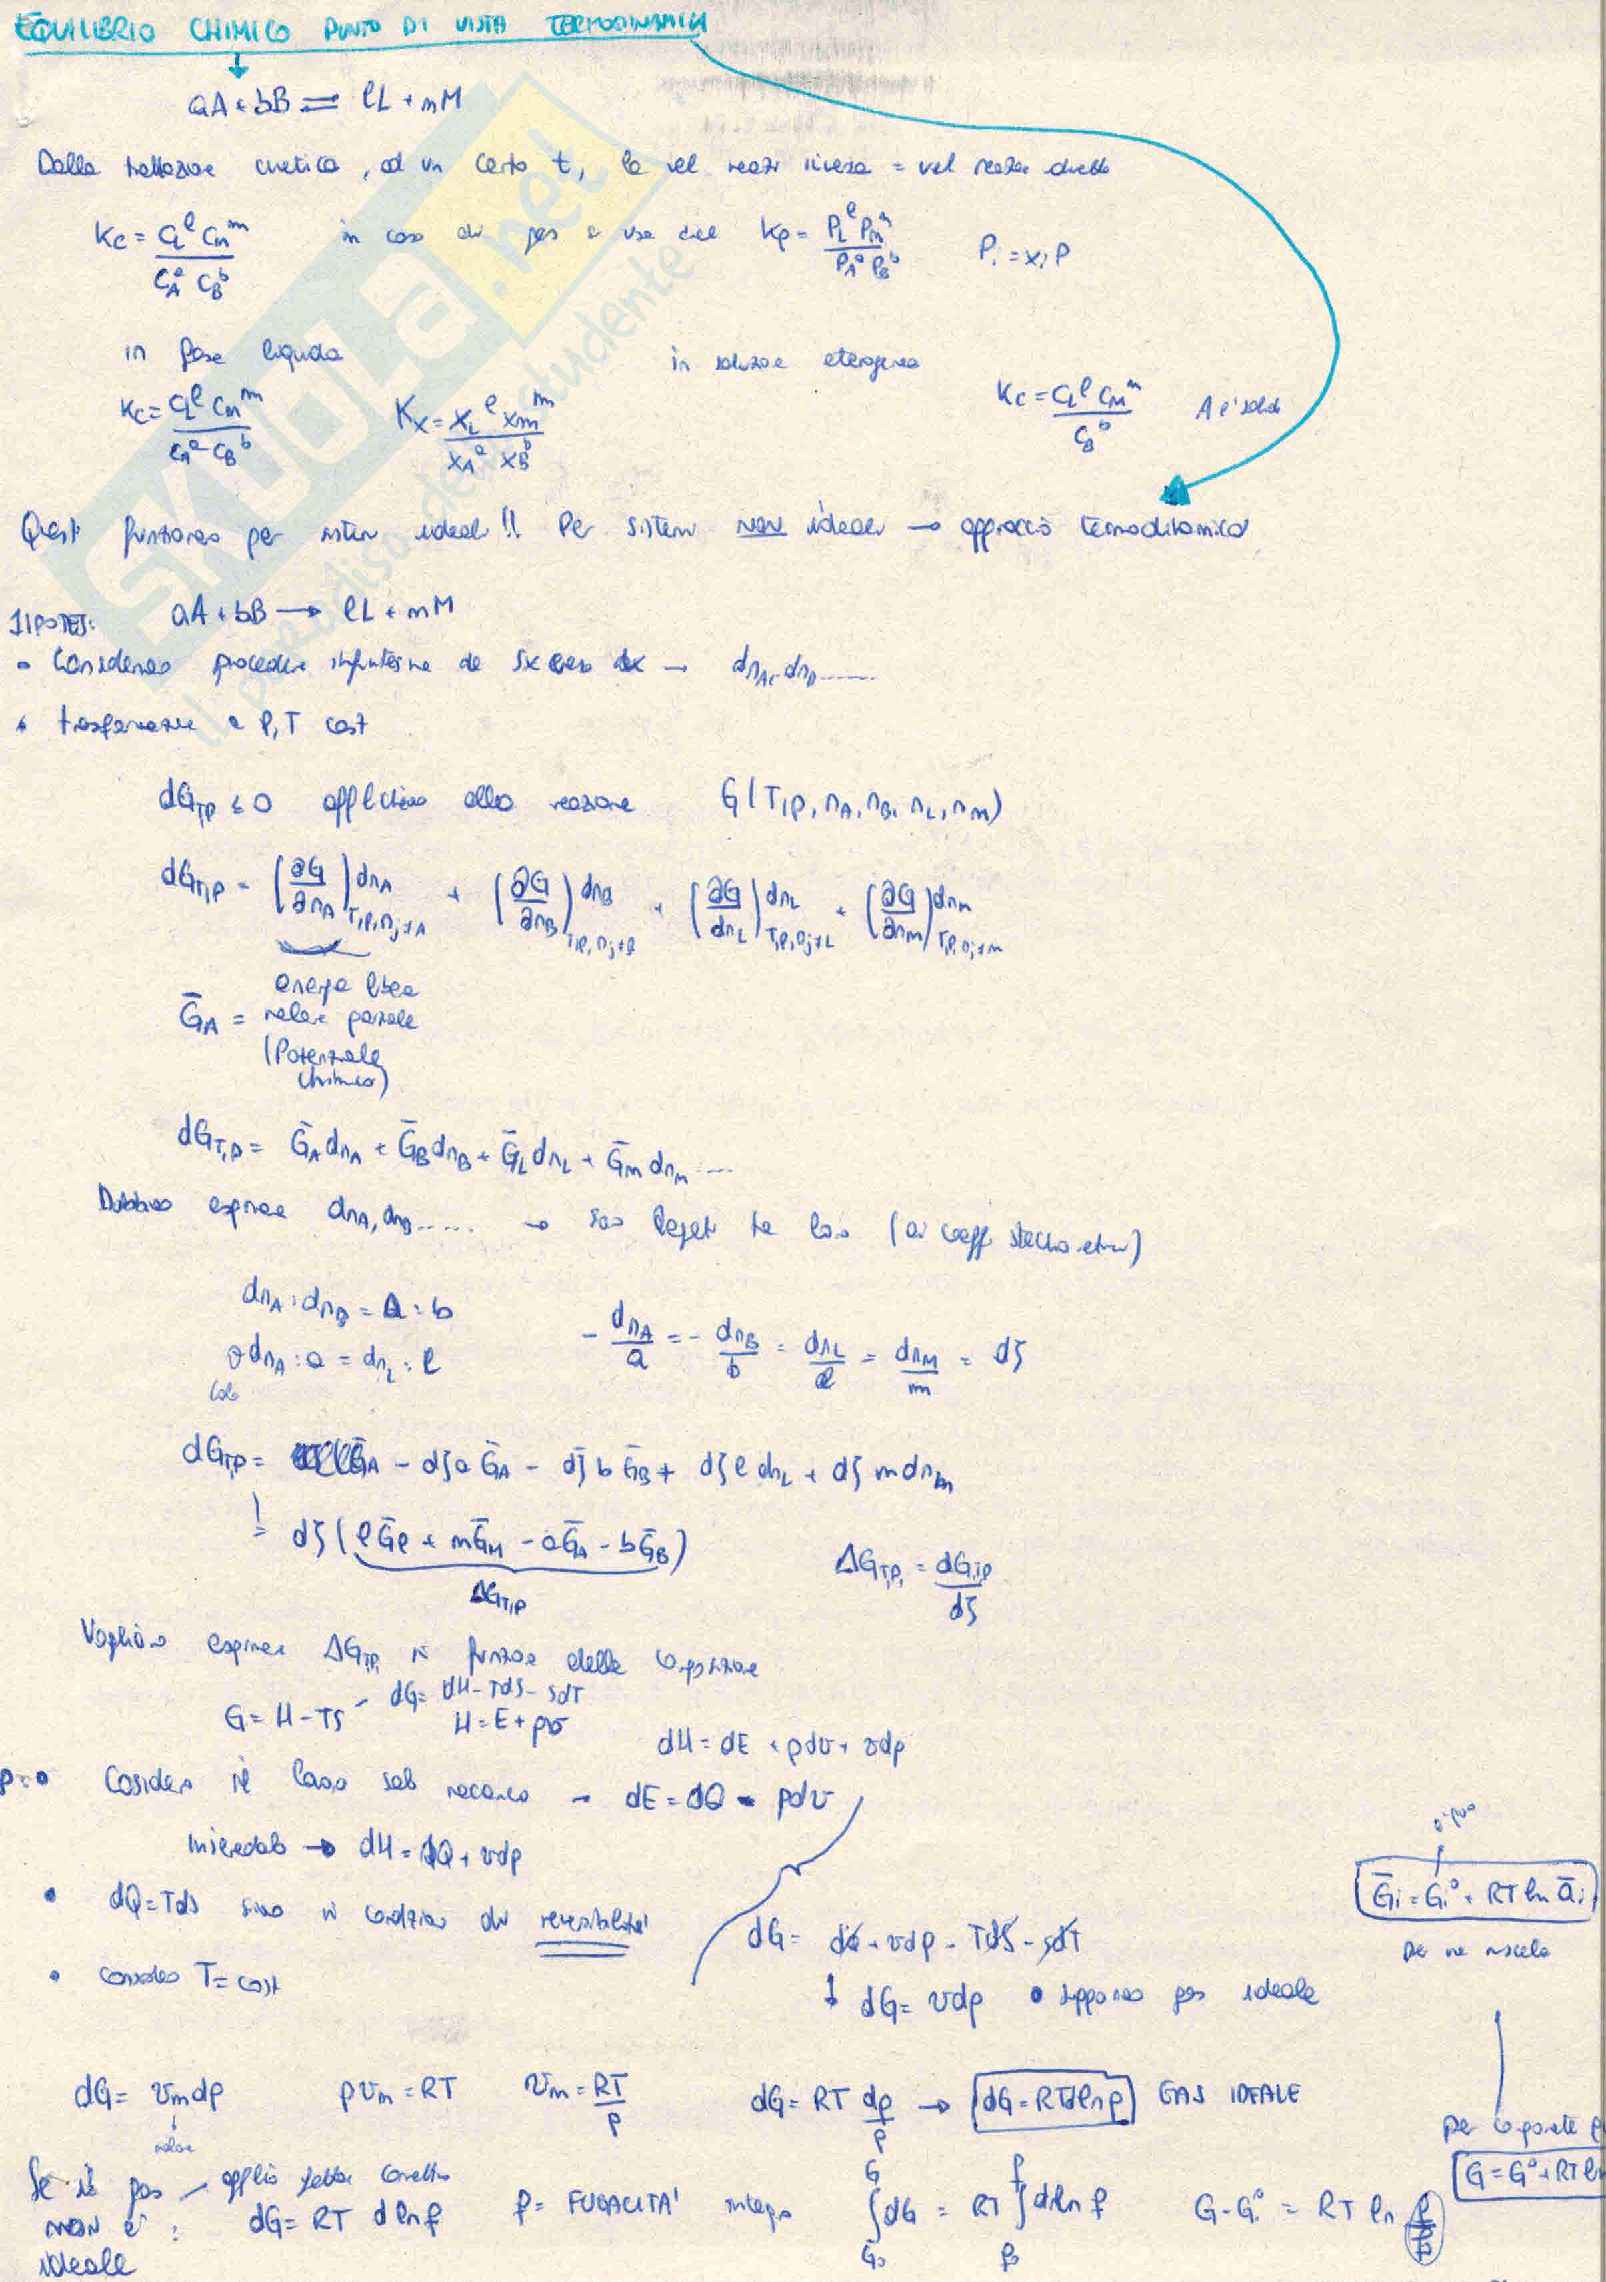 EQUILIBRIO CHIMICO PUNTO DI VISTA TERMODINAMICA
aA + bB = lL + mM
Dalla trattazione cinetica, ad un certo t, la vel reaz inversa = vel reazione diretta
Kc = C_L^l C_M^m / C_A^a C_B^b in caso di gas si usa del Kp = P_L^l P_M^m / P_A^a P_B^b P_i = x_i P
in fase liquida in soluzione eterogenea
Kc = C_L^l C_M^m / C_A^a C_B^b Kx = x_L^l x_M^m / x_A^a x_B^b Kc = C_L^l C_M^m / C_B^b A è solido
Questi funzionano per sistemi ideali!! Per sistemi NON ideali → approccio termodinamico
IPOTESI: aA + bB → lL + mM
• Consideriamo procedere infinitesimo da sx verso dx → dn_A, dn_B......
• trasformazione a P,T cost
dG_T,P ≤ 0 applichiamo alla reazione G(T,P,n_A,n_B,n_L,n_M)
dG_T,P = (∂G/∂n_A)_T,P,n_j≠A dn_A + (∂G/∂n_B)_T,P,n_j≠B dn_B + (∂G/dn_L)_T,P,n_j≠L dn_L + (∂G/∂n_M)_T,P,n_j≠M dn_M
Ḡ_A = energia libera molare parziale (Potenziale chimico)
dG_T,P = Ḡ_A dn_A + Ḡ_B dn_B + Ḡ_L dn_L + Ḡ_M dn_M ....
Dobbiamo esprimere dn_A, dn_B...... → sono legati tra loro (ai coeff stechiometrici)
dn_A : dn_B = a : b
dn_A : a = dn_L : l
- dn_A/a = - dn_B/b = dn_L/l = dn_M/m = dζ
dG_T,P = - dζ a Ḡ_A - dζ b Ḡ_B + dζ l dn_L + dζ m dn_M
= dζ (l Ḡ_l + m Ḡ_M - a Ḡ_A - b Ḡ_B)
ΔG_T,P
ΔG_T,P = dG_T,P / dζ
Vogliamo esprimere ΔG_T,P in funzione della composizione
G = H - TS - dG = dH - TdS - SdT
H = E + pv
dH = dE + pdv + vdp
Considero il lavoro solo meccanico → dE = dQ - pdv
→ dH = dQ + vdp
• dQ = TdS siano in condizioni di reversibilità
• considero T = cost
dG = dQ + vdp - TdS - SdT
↓ dG = vdp • suppongo gas ideale
Ḡ_i = G_i° + RT ln ā_i
per una miscela
dG = v_m dp p v_m = RT v_m = RT/p dG = RT dp/p → dG = RT d ln p GAS IDEALE
molare
per componente
G = G° + RT ln
Se il gas NON è ideale → applico fattore correttivo
dG = RT d ln f f = FUGACITA' integro ∫_G0^G dG = RT ∫_f0^f d ln f G - G° = RT ln f/f0